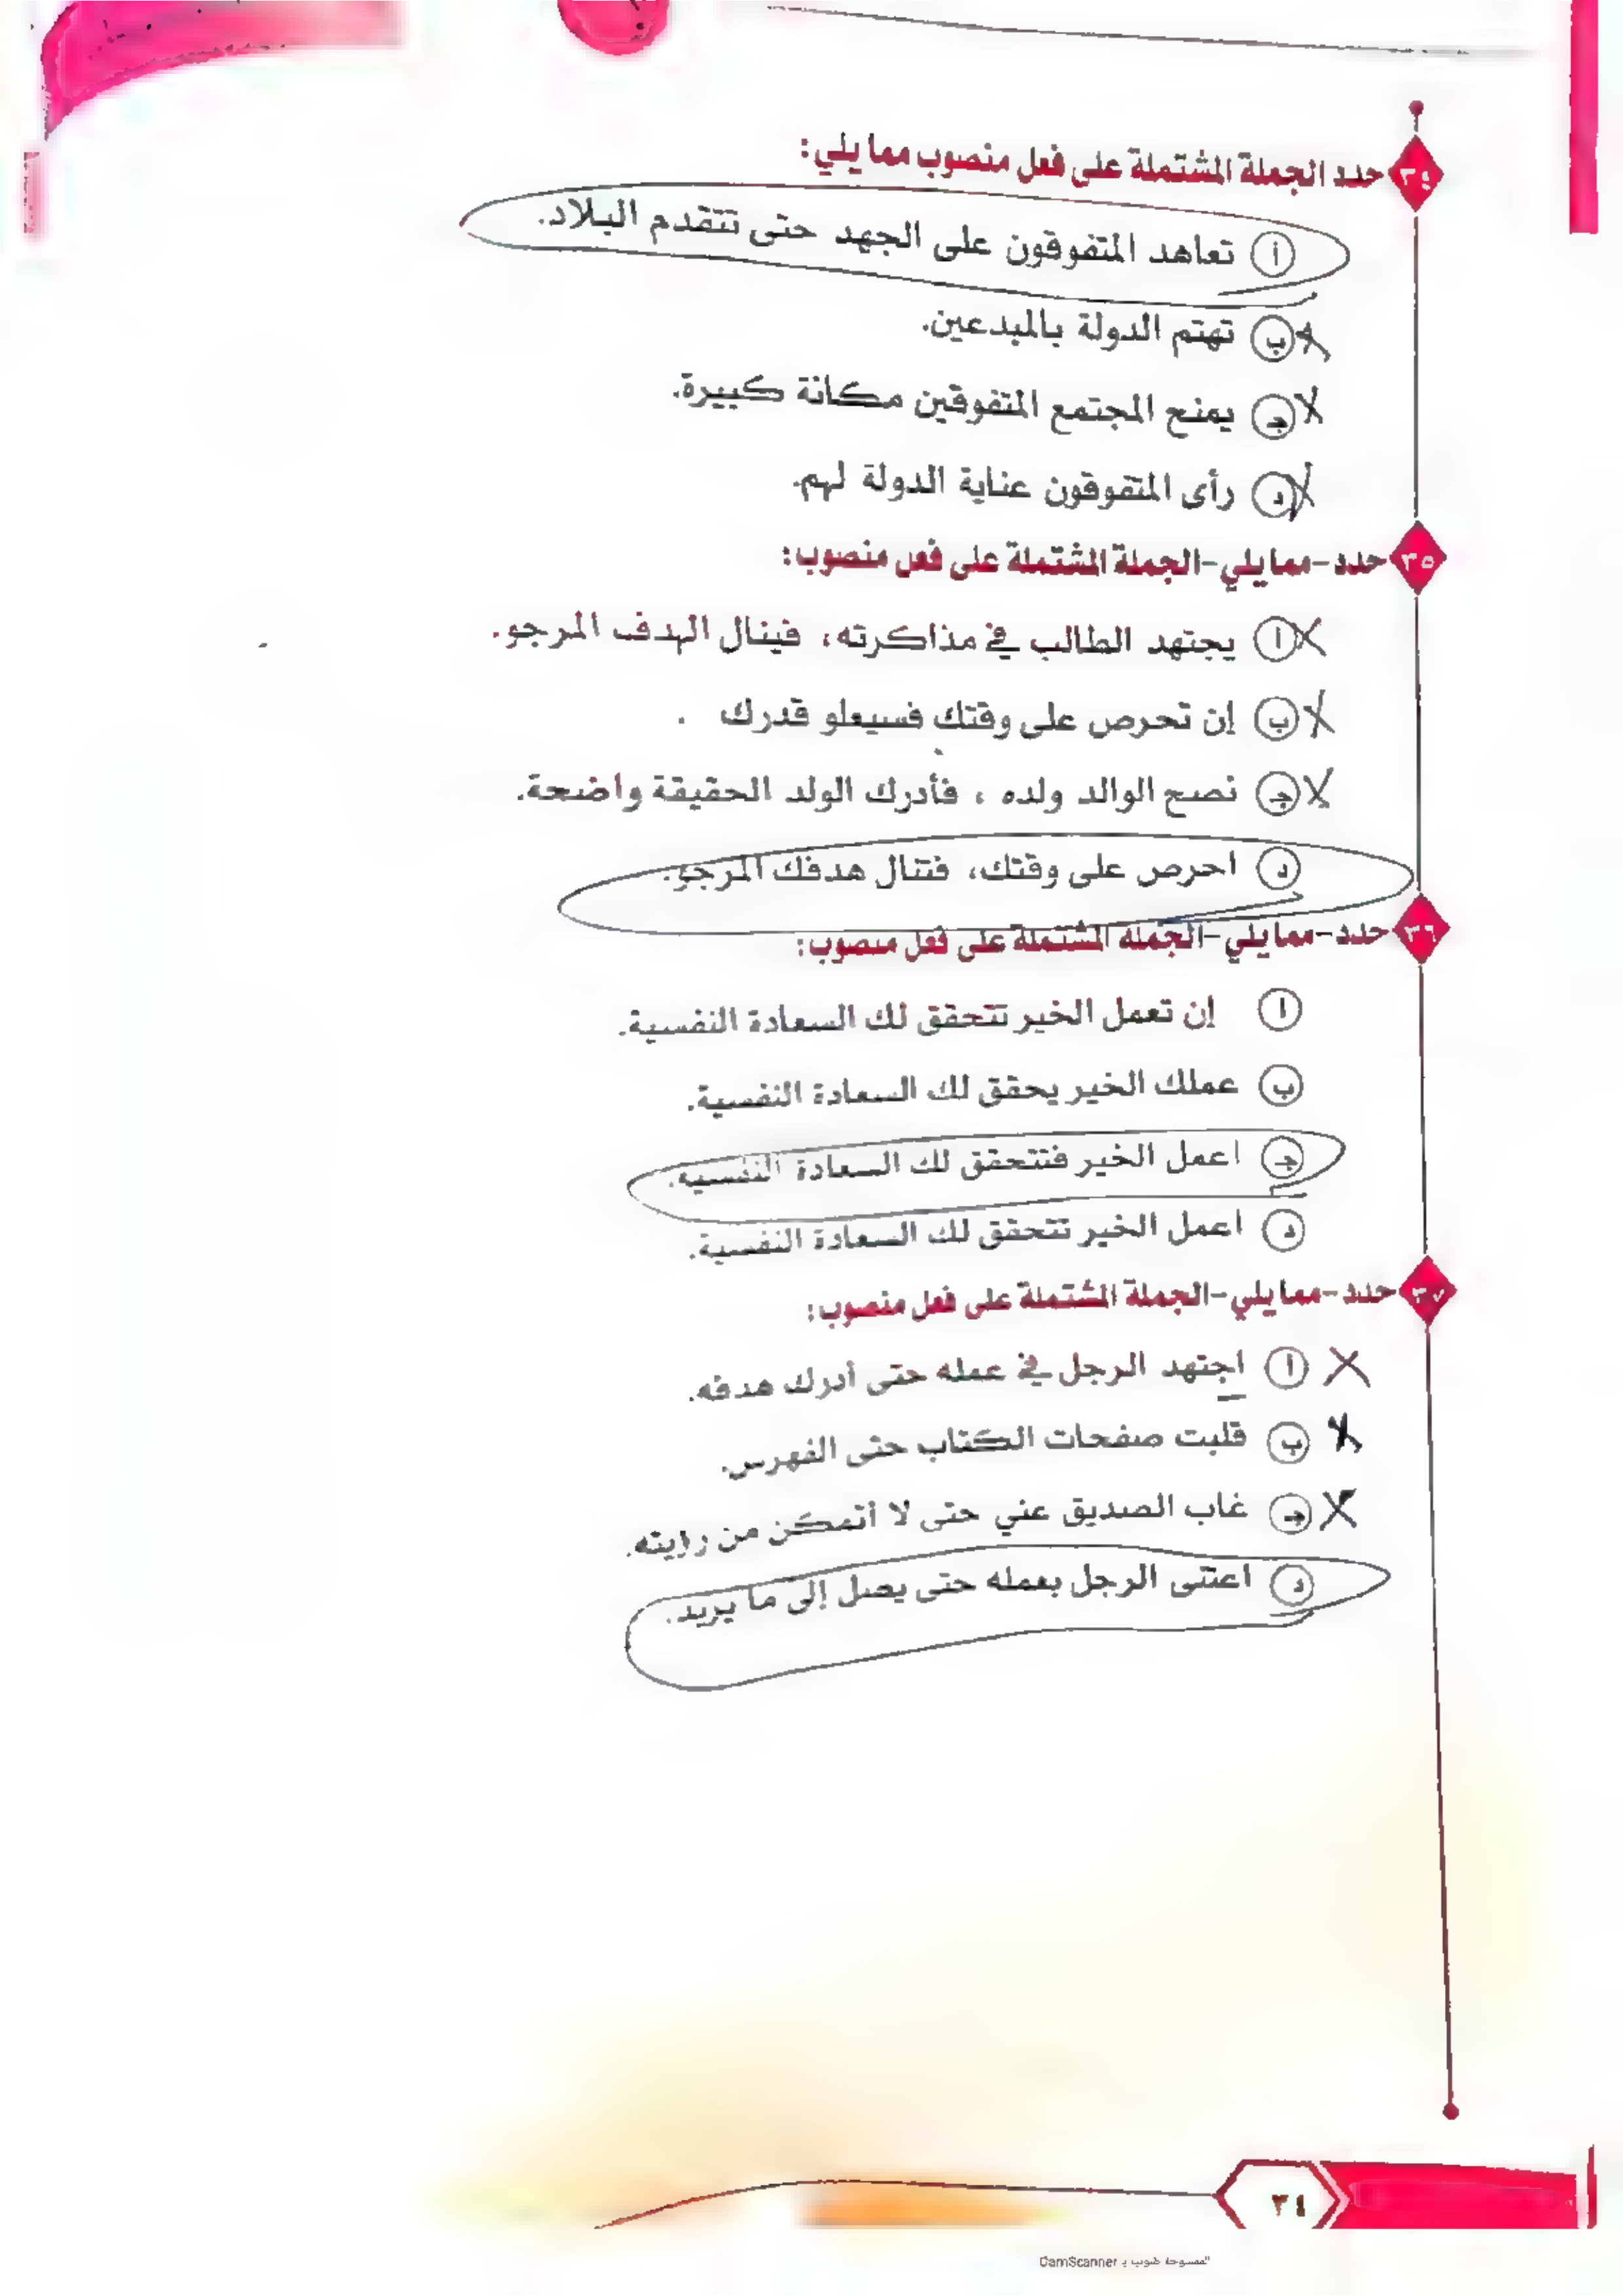 ٣٤ حدد الجملة المشتملة على فعل منصوب مما يلي:
أ تعاهد المتفوقون على الجهد حتى تتقدم البلاد.
ب تهتم الدولة بالمبدعين.
ج يمنح المجتمع المتفوقين مكانة كبيرة.
د رأى المتفوقون عناية الدولة لهم.
٣٥ حدد-مما يلي-الجملة المشتملة على فعل منصوب:
ا يجتهد الطالب في مذاكرته، فينال الهدف المرجو.
ب إن تحرص على وقتك فسيعلو قدرك .
ج نصح الوالد ولده ، فأدرك الولد الحقيقة واضحة.
د احرص على وقتك، فتنال هدفك المرجو.
٣٦ حدد-مما يلي-الجملة المشتملة على فعل منصوب:
ا إن تعمل الخير تتحقق لك السعادة النفسية.
ب عملك الخير يحقق لك السعادة النفسية.
ج اعمل الخير فتتحقق لك السعادة النفسية.
د اعمل الخير تتحقق لك السعادة النفسية.
٣٧ حدد-مما يلي-الجملة المشتملة على فعل منصوب:
ا اجتهد الرجل في عمله حتى أدرك هدفه.
ب قلبت صفحات الكتاب حتى الفهرس.
ج غاب الصديق عني حتى لا أتمكن من رؤيته.
د اعتنى الرجل بعمله حتى يصل إلى ما يريد.
٣٤
الممسوحة ضوئيا بـ CamScanner